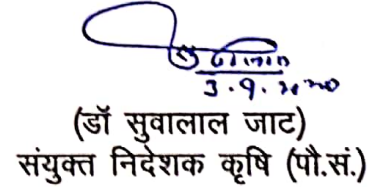 3.9.2020
(डॉ सुवालाल जाट)
संयुक्त निदेशक कृषि (पौ.सं.)